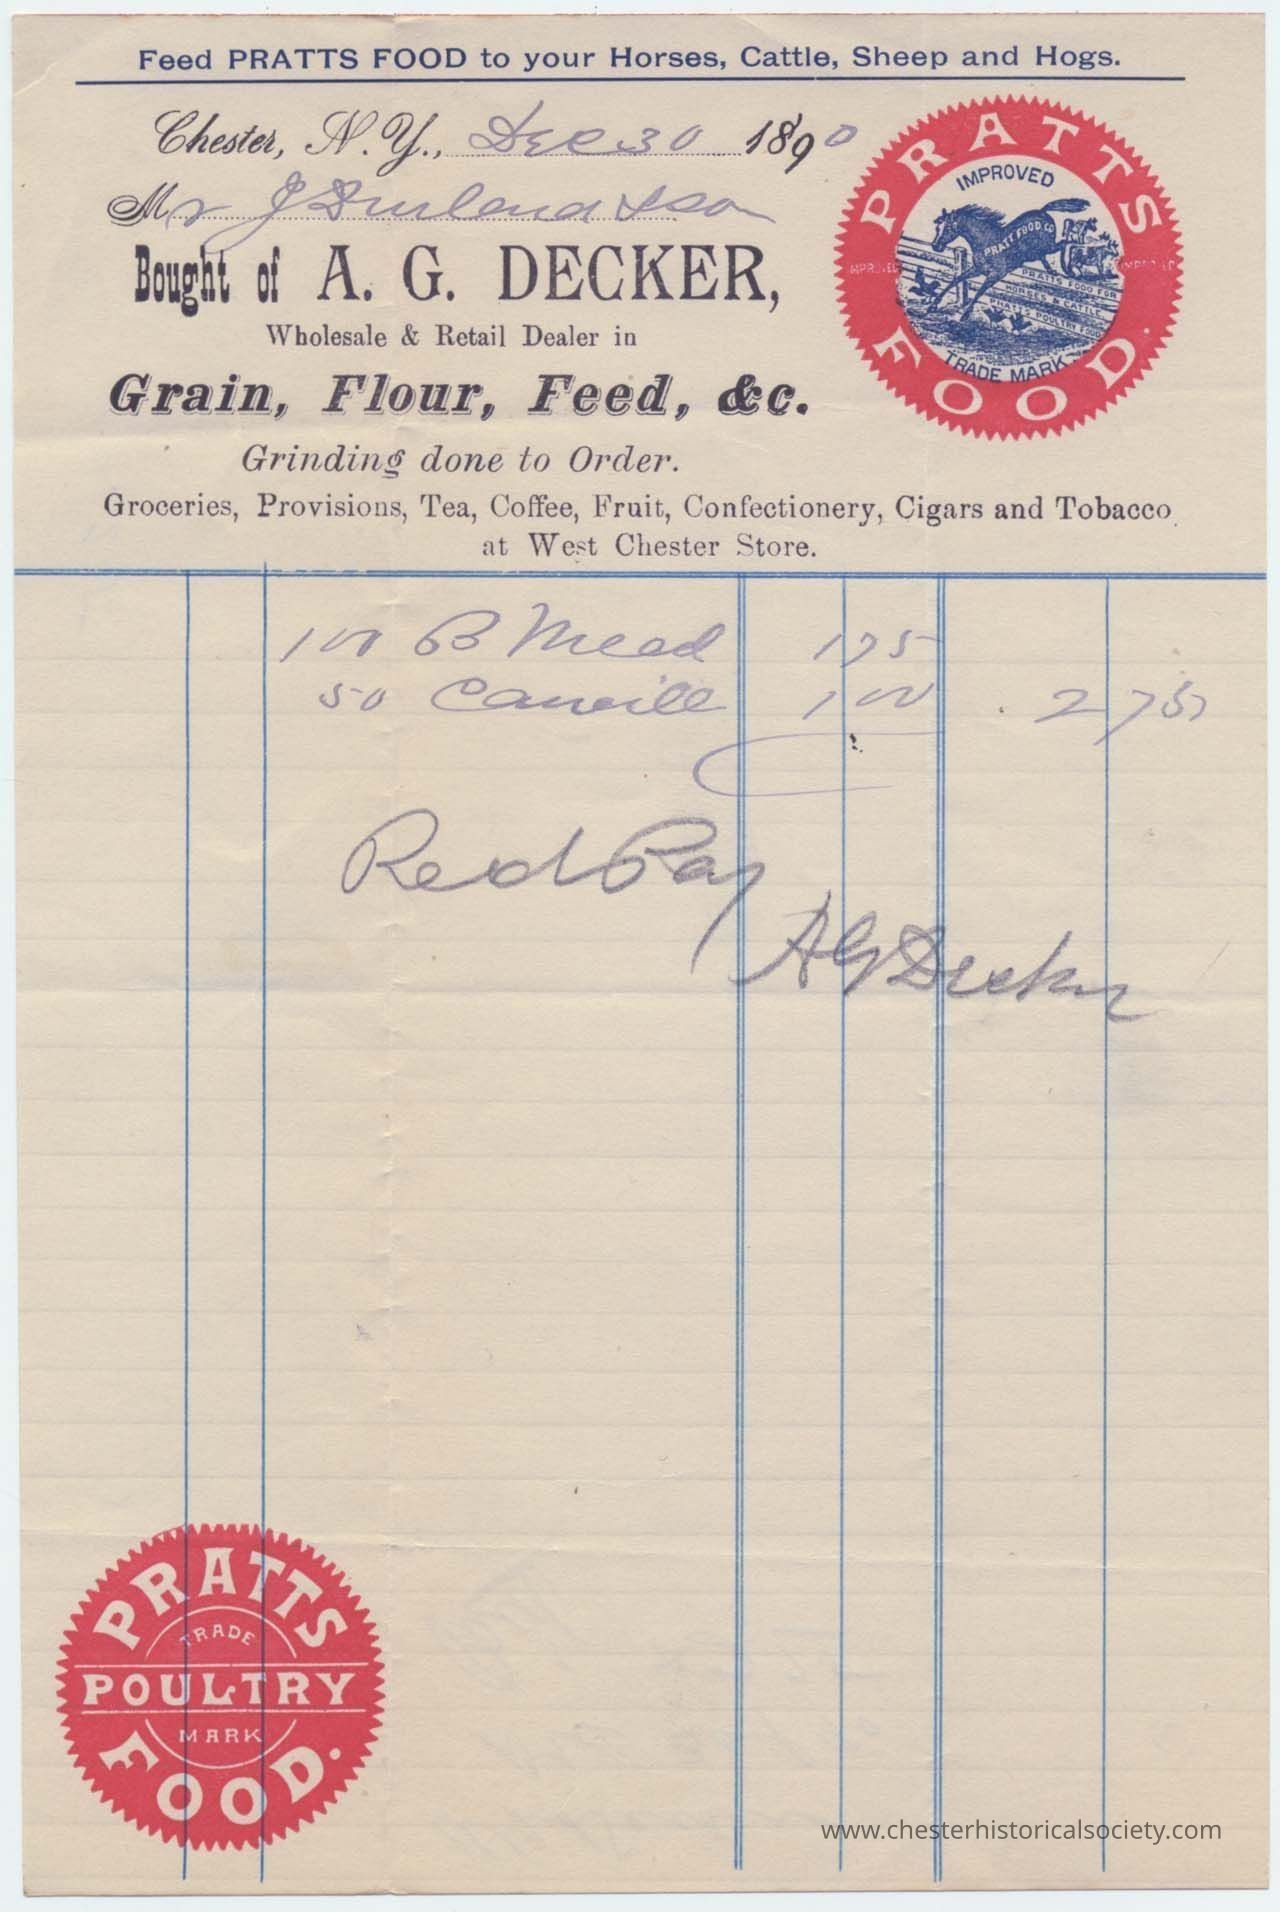 Feed PRATTS FOOD to your Horses, Cattle, Sheep and Hogs.
Chester, N. Y., Dec 30 1890
Mr J Durland & Son
Bought of A. G. DECKER,
Wholesale & Retail Dealer in
Grain, Flour, Feed, &c.
Grinding done to Order.
Groceries, Provisions, Tea, Coffee, Fruit, Confectionery, Cigars and Tobacco
at West Chester Store.
PRATTS
IMPROVED
PRATT FOOD CO
IMPROVED
IMPROVED
PRATTS FOOD FOR
HORSES & CATTLE
PRATTS POULTRY FOOD
TRADE MARK
FOOD.
100 B Meal 175
50 100 2 75
Recd Pay
A G Decker
PRATTS
TRADE
POULTRY
MARK
FOOD.
www.chesterhistoricalsociety.com